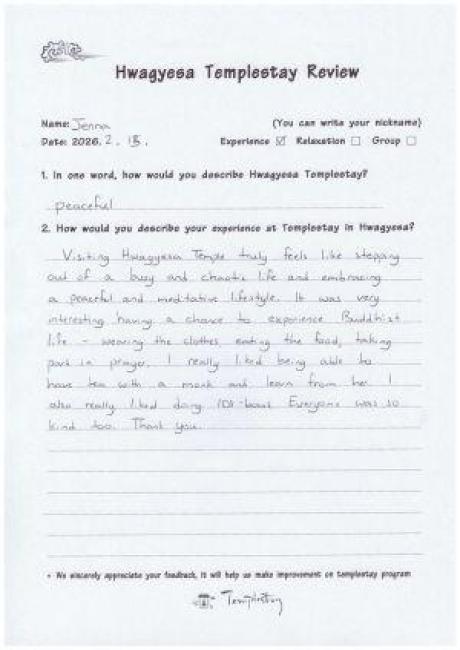 Hwagyesa Templestay Review
Name: Jenna (You can write your nickname)
Date: 2026. 2. 15. Experience ☑ Relaxation ☐ Group ☐
1. In one word, how would you describe Hwagyesa Templestay?
peaceful
2. How would you describe your experience at Templestay in Hwagyesa?
Visiting Hwagyesa Temple truly feels like stepping
out of a busy and chaotic life and embracing
a peaceful and meditative lifestyle. It was very
interesting having a chance to experience Buddhist
life - wearing the clothes, eating the food, taking
part in prayer. I really liked being able to
have tea with a monk and learn from her. I
also really liked doing 108-bows. Everyone was so
kind too. Thank you.
* We sincerely appreciate your feedback, it will help us make improvement on templestay program
Templestay